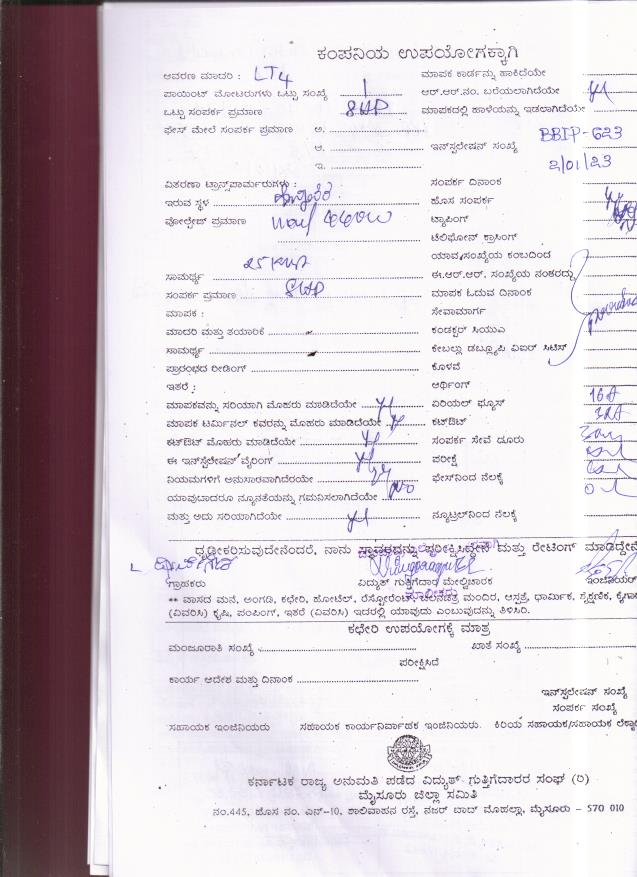 ಕಂಪನಿಯ ಉಪಯೋಗಕ್ಕಾಗಿ
ಆವರಣ ಮಾದರಿ : LT4
ಮಾಪಕ ಕಾರ್ಡನ್ನು ಹಾಕಿದೆಯೇ
ಪಾಯಿಂಟ್ ಮೋಟರುಗಳು ಒಟ್ಟು ಸಂಖ್ಯೆ 1
ಆರ್.ಆರ್.ನಂ. ಬರೆಯಲಾಗಿದೆಯೇ
ಒಟ್ಟು ಸಂಪರ್ಕ ಪ್ರಮಾಣ 8HP
ಮಾಪಕದಲ್ಲಿ ಹಾಳೆಯನ್ನು ಇಡಲಾಗಿದೆಯೇ
ಫೇಸ್ ಮೇಲೆ ಸಂಪರ್ಕ ಪ್ರಮಾಣ ಅ.
ಆ.
ಇ.
ಇನ್‌ಸ್ಟಲೇಷನ್ ಸಂಖ್ಯೆ BBIP-623
2/01/23
ವಿತರಣಾ ಟ್ರಾನ್ಸ್‌ಫಾರ್ಮರುಗಳು :
ಸಂಪರ್ಕ ದಿನಾಂಕ
ಇರುವ ಸ್ಥಳ
ಹೊಸ ಸಂಪರ್ಕ
ವೋಲ್ಟೇಜ್ ಪ್ರಮಾಣ
ಟ್ಯಾಪಿಂಗ್
ಟೆಲಿಫೋನ್ ಕ್ರಾಸಿಂಗ್
ಯಾವ ಸಂಖ್ಯೆಯ ಕಂಬದಿಂದ
ಸಾಮರ್ಥ್ಯ 25
ಈ.ಆರ್.ಆರ್. ಸಂಖ್ಯೆಯ ನಂತರದ್ದು
ಸಂಪರ್ಕ ಪ್ರಮಾಣ 8HP
ಮಾಪಕ ಓದುವ ದಿನಾಂಕ
ಮಾಪಕ :
ಸೇವಾಮಾರ್ಗ
ಮಾದರಿ ಮತ್ತು ತಯಾರಿಕೆ
ಕಂಡಕ್ಟರ್ ಸಿಯುಎ
ಸಾಮರ್ಥ್ಯ
ಕೇಬಲ್ಲು ಡಬ್ಲ್ಯೂಪಿ ವಿಐರ್ ಸಿಟಿಸ್
ಪ್ರಾರಂಭದ ರೀಡಿಂಗ್
ಕೊಳವೆ
ಇತರೆ :
ಆರ್ಥಿಂಗ್
ಮಾಪಕವನ್ನು ಸರಿಯಾಗಿ ಮೊಹರು ಮಾಡಿದೆಯೇ
ಏರಿಯಲ್ ಫ್ಯೂಸ್ 16A
ಮಾಪಕ ಟರ್ಮಿನಲ್ ಕವರನ್ನು ಮೊಹರು ಮಾಡಿದೆಯೇ
ಕಟ್‌ಔಟ್ 32A
ಕಟ್‌ಔಟ್ ಮೊಹರು ಮಾಡಿದೆಯೇ
ಸಂಪರ್ಕ ಸೇವೆ ದೂರು
ಈ ಇನ್‌ಸ್ಟಲೇಷನ್ ವೈರಿಂಗ್
ಪರೀಕ್ಷೆ
ನಿಯಮಗಳಿಗೆ ಅನುಸಾರವಾಗಿದೆರೆಯೇ
ಫೇಸ್‌ನಿಂದ ನೆಲಕ್ಕೆ
ಯಾವುಬಾದರೂ ನ್ಯೂನತೆಯನ್ನು ಗಮನಿಸಲಾಗಿದೆಯೇ No
ಮತ್ತು ಅದು ಸರಿಯಾಗಿದೆಯೇ
ನ್ಯೂಟ್ರಲ್‌ನಿಂದ ನೆಲಕ್ಕೆ
ಧೃಡೀಕರಿಸುವುದೇನೆಂದರೆ, ನಾನು ಸ್ಥಾವರವನ್ನು ಪರೀಕ್ಷಿಸಿದ್ದೇನೆ ಮತ್ತು ರೇಟಿಂಗ್ ಮಾಡಿದ್ದೇನೆ
ಗ್ರಾಹಕರು
ವಿದ್ಯುತ್ ಗುತ್ತಿಗೆದಾರ ಮೇಲ್ವಿಚಾರಕ
ಇಂಜಿನಿಯರ್
** ವಾಸದ ಮನೆ, ಅಂಗಡಿ, ಕಛೇರಿ, ಹೋಟೆಲ್, ರೆಸ್ಟೋರೆಂಟ್, ಚಲನಚಿತ್ರ ಮಂದಿರ, ಆಸ್ಪತ್ರೆ, ಧಾರ್ಮಿಕ, ಶೈಕ್ಷಣಿಕ, ಕೈಗಾ
(ವಿವರಿಸಿ) ಕೃಷಿ, ಪಂಪಿಂಗ್, ಇತರೆ (ವಿವರಿಸಿ) ಇದರಲ್ಲಿ ಯಾವುದು ಎಂಬುವುದನ್ನು ತಿಳಿಸಿರಿ.
ಕಛೇರಿ ಉಪಯೋಗಕ್ಕೆ ಮಾತ್ರ
ಮಂಜೂರಾತಿ ಸಂಖ್ಯೆ
ಖಾತೆ ಸಂಖ್ಯೆ
ಪರೀಕ್ಷಿಸಿದೆ
ಕಾರ್ಯ ಆದೇಶ ಮತ್ತು ದಿನಾಂಕ
ಇನ್‌ಸ್ಟಲೇಷನ್ ಸಂಖ್ಯೆ
ಸಂಪರ್ಕ ಸಂಖ್ಯೆ
ಸಹಾಯಕ ಇಂಜಿನಿಯರು ಸಹಾಯಕ ಕಾರ್ಯನಿರ್ವಾಹಕ ಇಂಜಿನಿಯರು. ಕಿರಿಯ ಸಹಾಯಕ/ಸಹಾಯಕ ಲೆಕ್ಕಾ
ಕರ್ನಾಟಕ ರಾಜ್ಯ ಅನುಮತಿ ಪಡೆದ ವಿದ್ಯುತ್ ಗುತ್ತಿಗೆದಾರರ ಸಂಘ (ರಿ)
ಮೈಸೂರು ಜಿಲ್ಲಾ ಸಮಿತಿ
ನಂ.445, ಹೊಸ ನಂ. ಎನ್-10, ಶಾಲಿವಾಹನ ರಸ್ತೆ, ನಜರ್ ಬಾದ್ ಮೊಹಲ್ಲಾ, ಮೈಸೂರು - 570 010